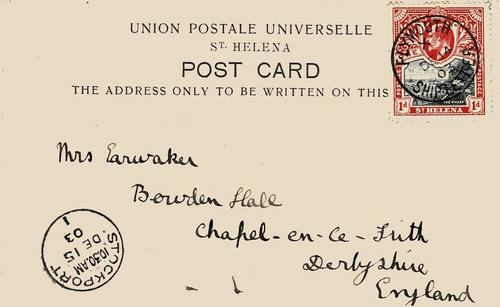 UNION POSTALE UNIVERSELLE
ST. HELENA
POST CARD
THE ADDRESS ONLY TO BE WRITTEN ON THIS
PLYMOUTH
SHIP
THE WHARF
1d ST HELENA 1d
Mrs Earwaker
Bowden Hall
Chapel-en-le-Frith
Derbyshire
England
STOCKPORT
10:30AM
DE 15
03
1